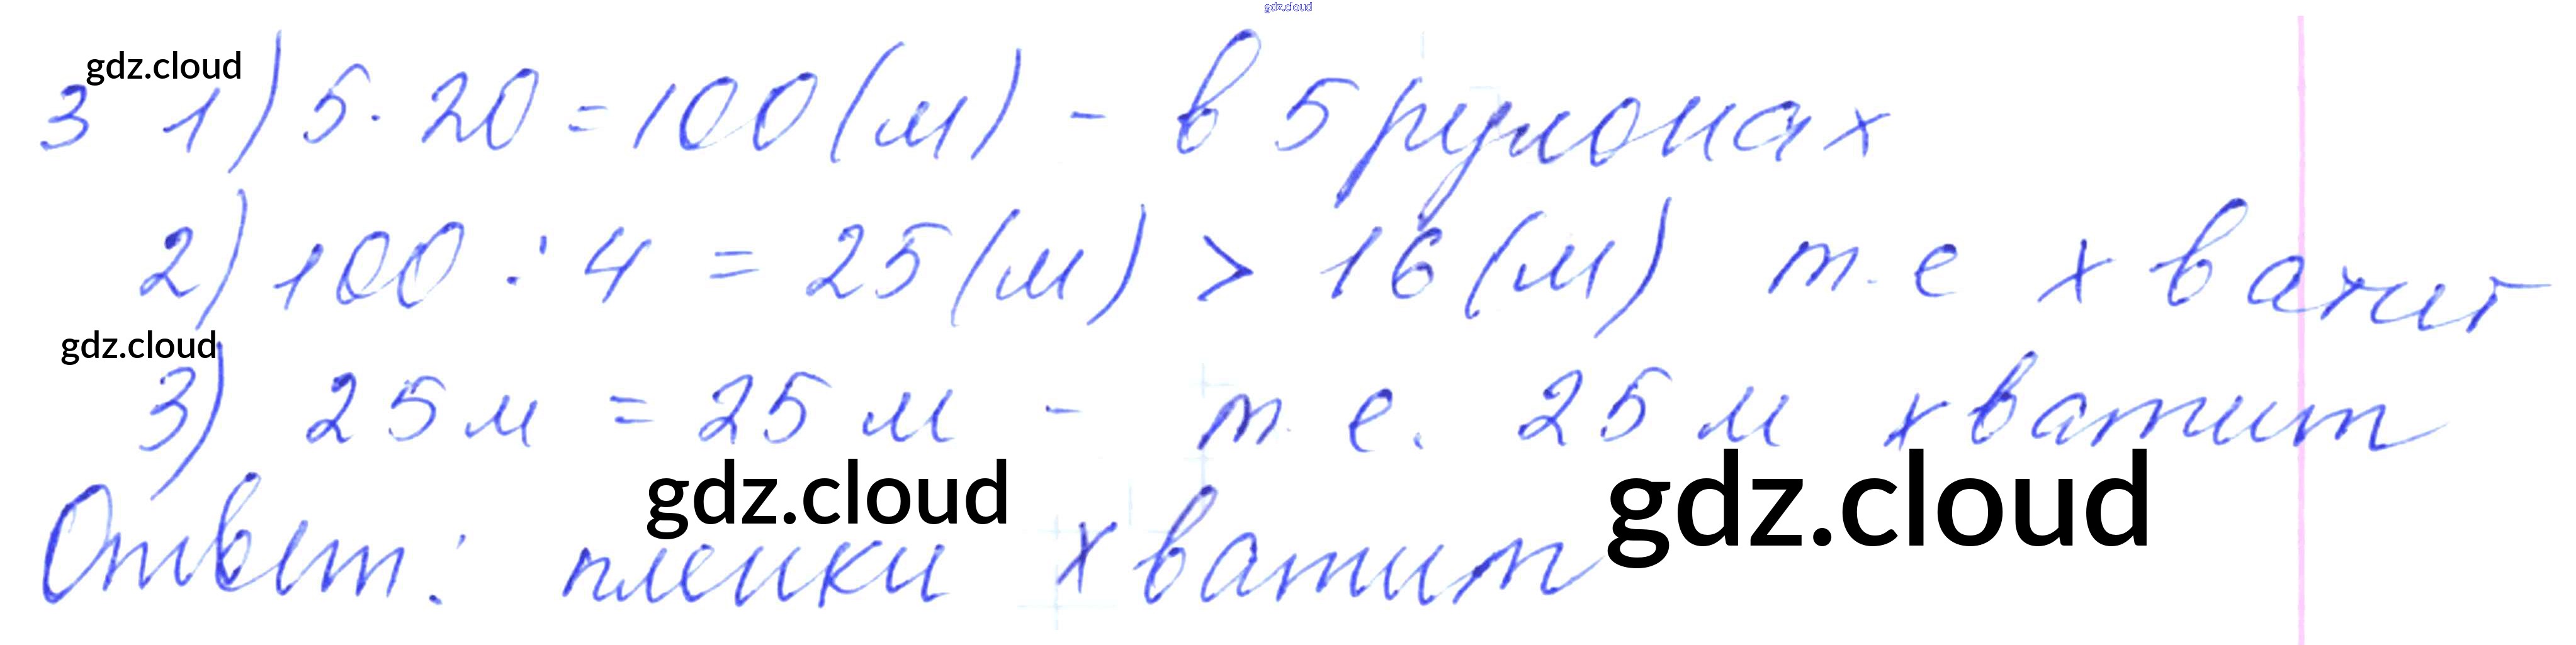 gdz.cloud
gdz.cloud
3 1) 5 · 20 = 100 (м) - в 5 рулонах
2) 100 : 4 = 25 (м) > 16 (м) т.е хватит
gdz.cloud
3) 25 м = 25 м - т.е. 25 м хватит
gdz.cloud
gdz.cloud
Ответ: пленки хватит